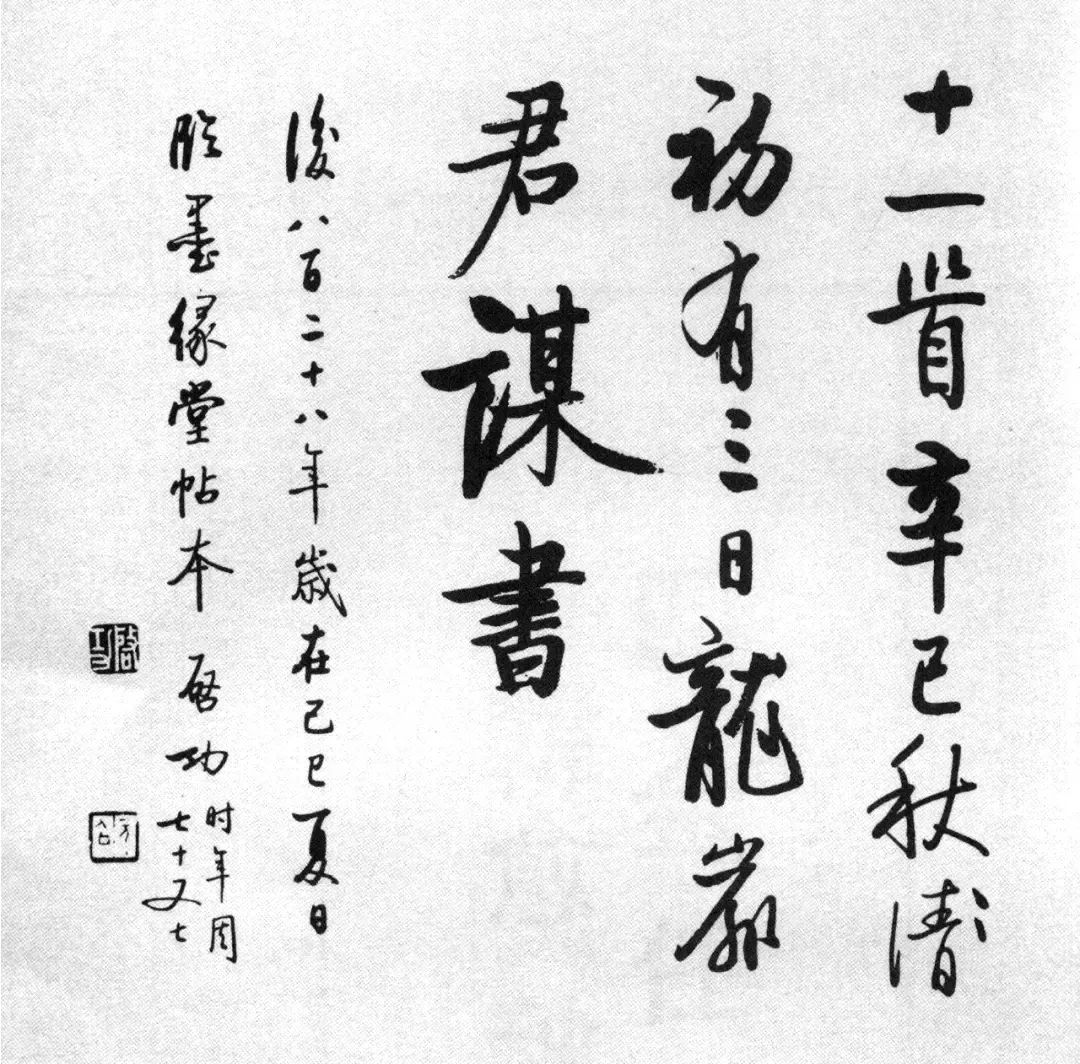 十一首辛巳秋清
初有三日龍巖
君謀書
後八百二十八年歲在己巳夏日
臨墨緣堂帖本 啓功
时年周
七十又七
啓功